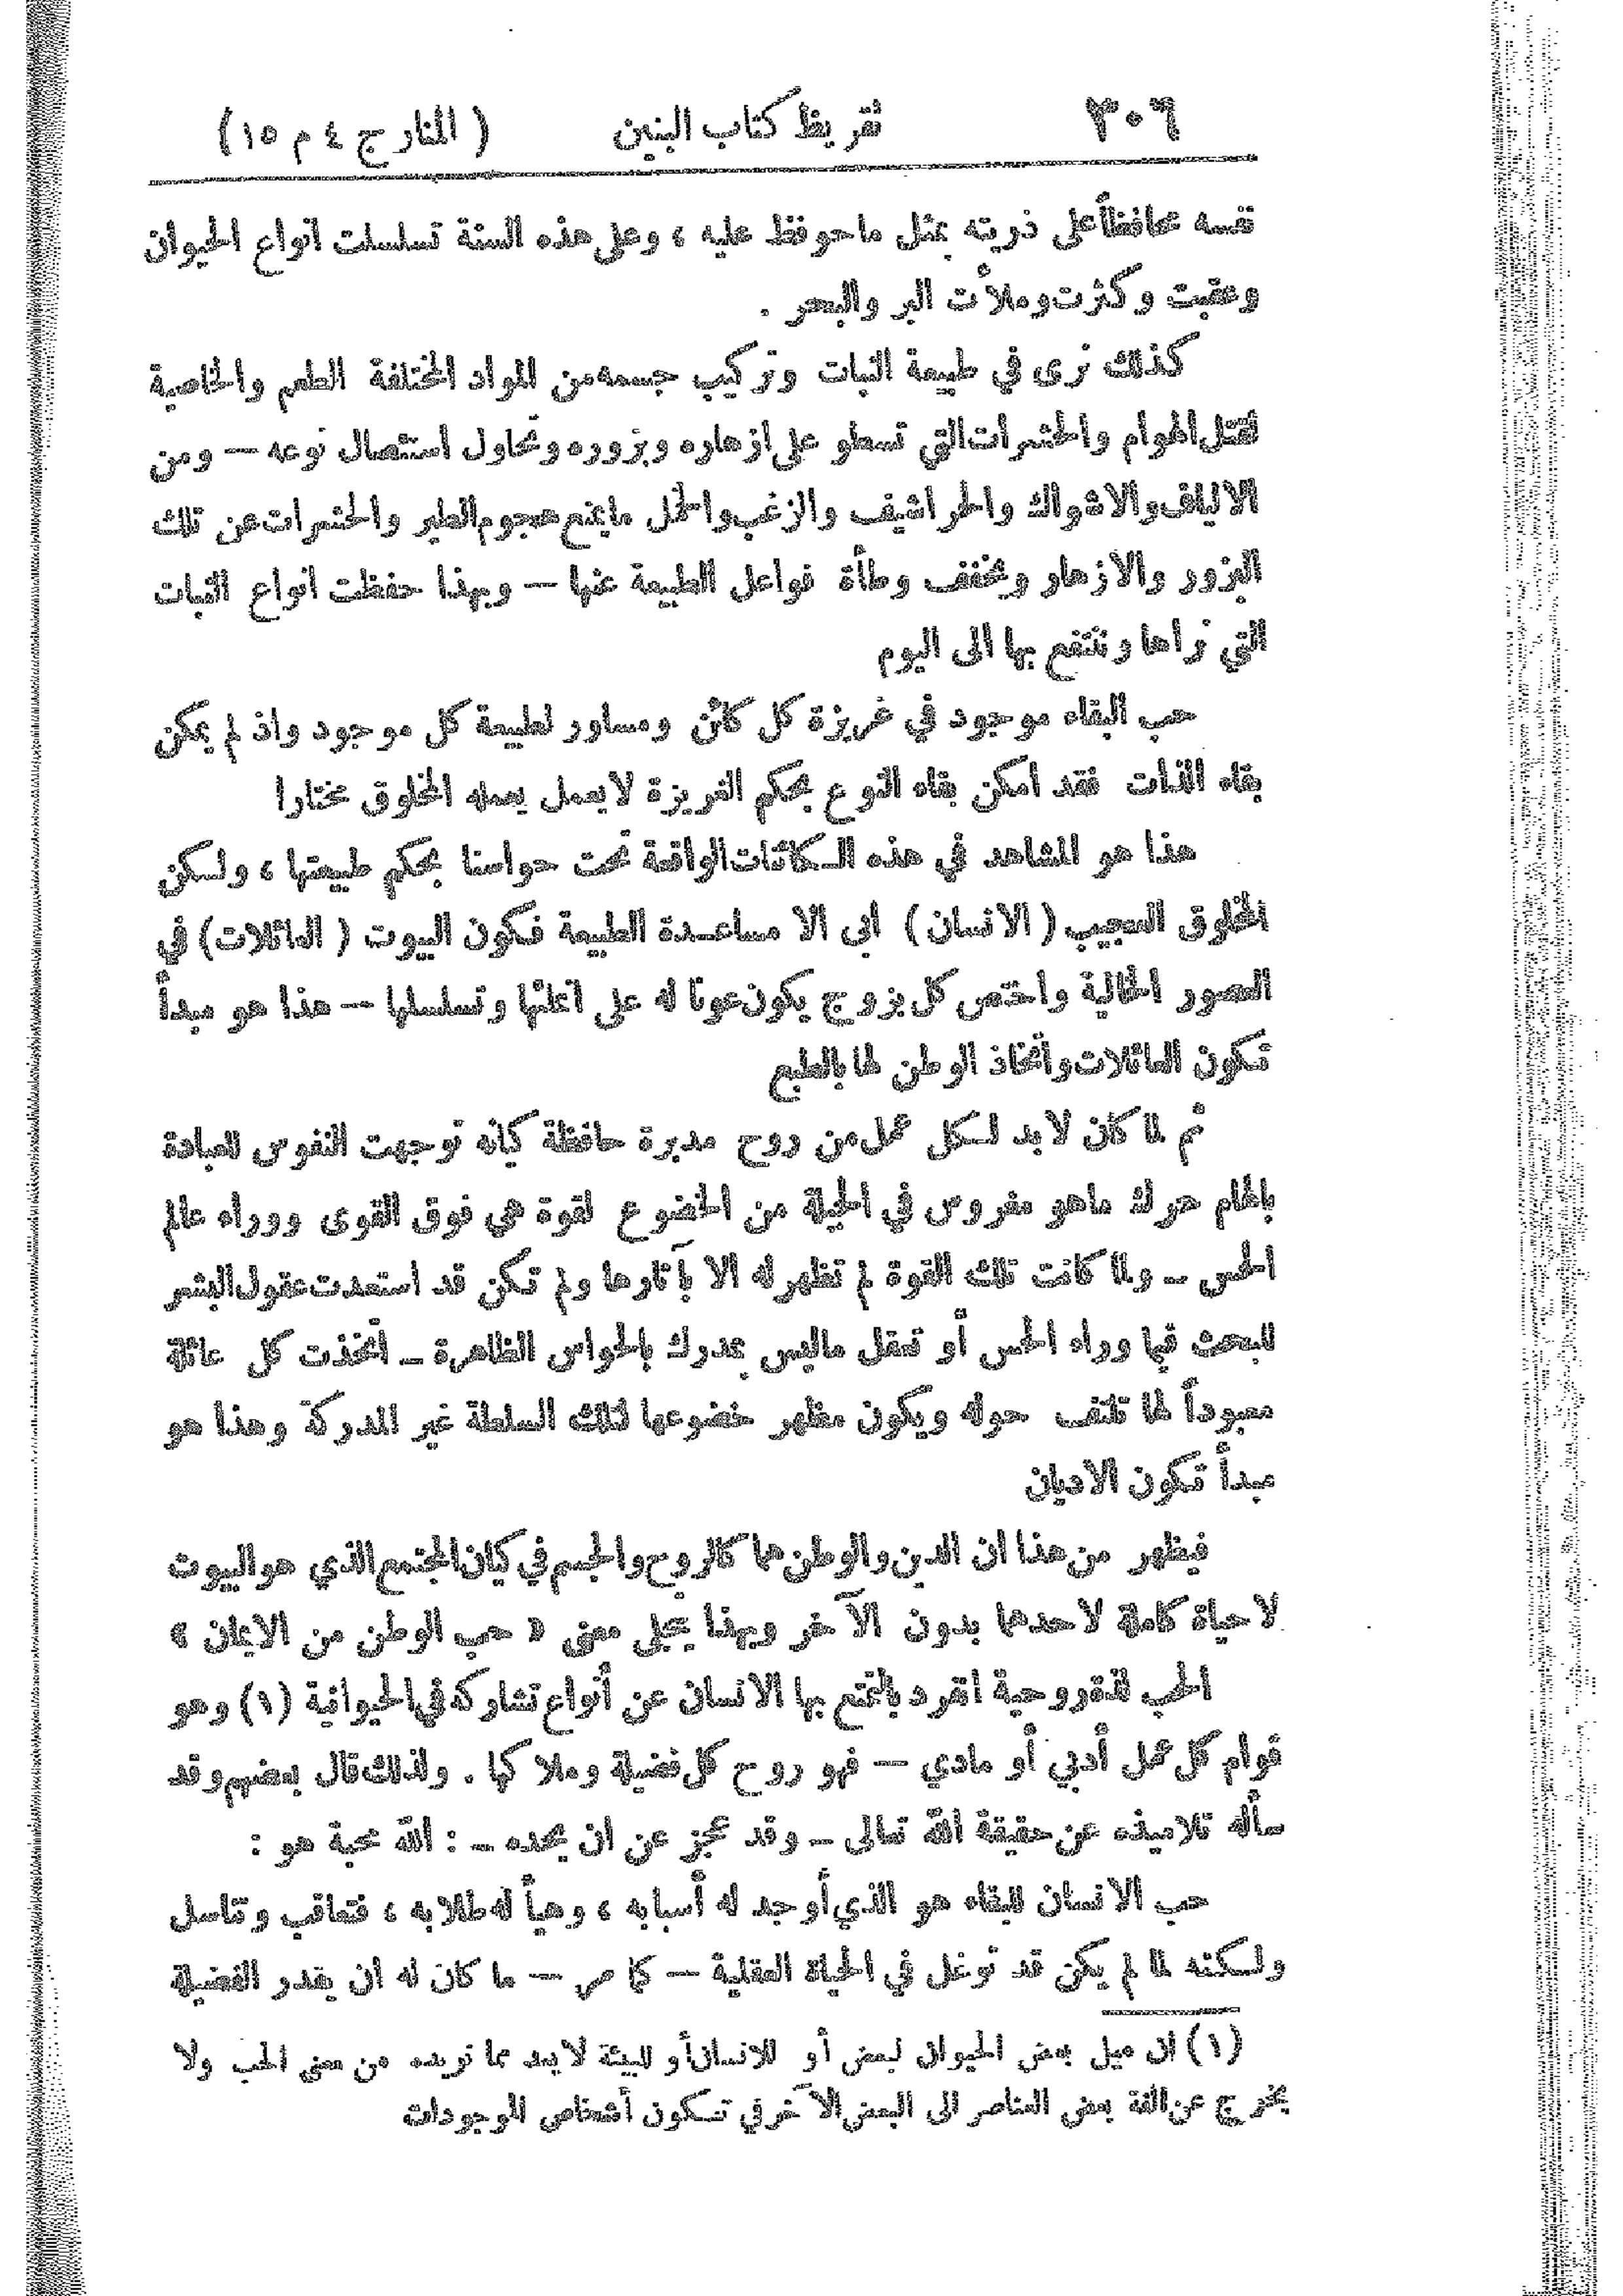 ٣٠٦ تقريظ كتاب البنين ( المنار ج ٤ م ١٥ )
نفسه محافظاً على ذريته بمثل ما حوفظ عليه ، وعلى هذه السنة تسلسلت انواع الحيوان
وعقبت وكثرت وملأت البر والبحر .
كذلك نرى في طبيعة النبات وتركيب جسمه من المواد المختلفة الطعم والخاصية
لقتل الهوام والحشرات التي تسطو على ازهاره وبزوره وتحاول استئصال نوعه — ومن
الالياف والاشواك والحراشيف والزغب والخمل ما يمنع هجوم الطير والحشرات عن تلك
البزور والازهار ويخفف وطأة فواعل الطبيعة عنها — وبهذا حفظت انواع النبات
التي نراها وننتفع بها الى اليوم
حب البقاء موجود في غريزة كل كائن ومساور لطبيعة كل موجود واذ لم يمكن
بقاء الذات فقد امكن بقاء النوع بحكم الغريزة لا بعمل يعمله المخلوق مختارا
هذا هو المشاهد في هذه الكائنات الواقعة تحت حواسنا بحكم طبيعتها ، ولكن
المخلوق العجيب ( الانسان ) ابى الا مساعدة الطبيعة فكون البيوت ( العائلات ) في
العصور الخالية واختص كل بزوج يكون عونا له على اعالتها وتسلسلها — هذا هو مبدأ
تكون العائلات واتخاذ الوطن لها بالطبع
ثم لما كان لا بد لكل عمل من روح مدبرة حافظة كيانه توجهت النفوس للعبادة
بالهام حرك ماهو مغروس في الجبلة من الخضوع لقوة هي فوق القوى ووراء عالم
الحس — ولما كانت تلك القوة لم تظهر له الا بآثارها ولم تكن قد استعدت عقول البشر
للبحث فيما وراء الحس أو تعقل ماليس بمدرك بالحواس الظاهرة — اتخذت كل عائلة
معبوداً لها تلتف حوله ويكون مظهر خضوعها لتلك السلطة غير المدركة وهذا هو
مبدأ تكون الاديان
فيظهر من هذا ان الدين والوطن هما كالروح والجسم في كيان المجتمع الذي هو البيوت
لا حياة كاملة لاحدهما بدون الآخر وبهذا يتجلى معنى « حب الوطن من الايمان »
الحب لذة روحية انفرد بالتمتع بها الانسان عن أنواع تشاركه في الحيوانية (١) وهو
قوام كل عمل أدبي أو مادي — فهو روح كل فضيلة وملاكها . ولذلك قال بعضهم وقد
سأله تلاميذه عن حقيقة الله تعالى — وقد عجز عن ان يحده — : الله محبة هو :
حب الانسان للبقاء هو الذي أوجد له أسبابه ، وهيأ له طلابه ، فتعاقب وتناسل
ولكنه لما لم يكن قد توغل في الحياة العقلية — كما مر — ما كان له ان يقدر الفضيلة
(١) ان ميل بعض الحيوان لبعض أو للانسان أو للبيئة لا يعد مما نريده من معنى الحب ولا
يخرج عن الفة بعض العناصر الى البعض الآخر في تكون أشخاص الموجودات